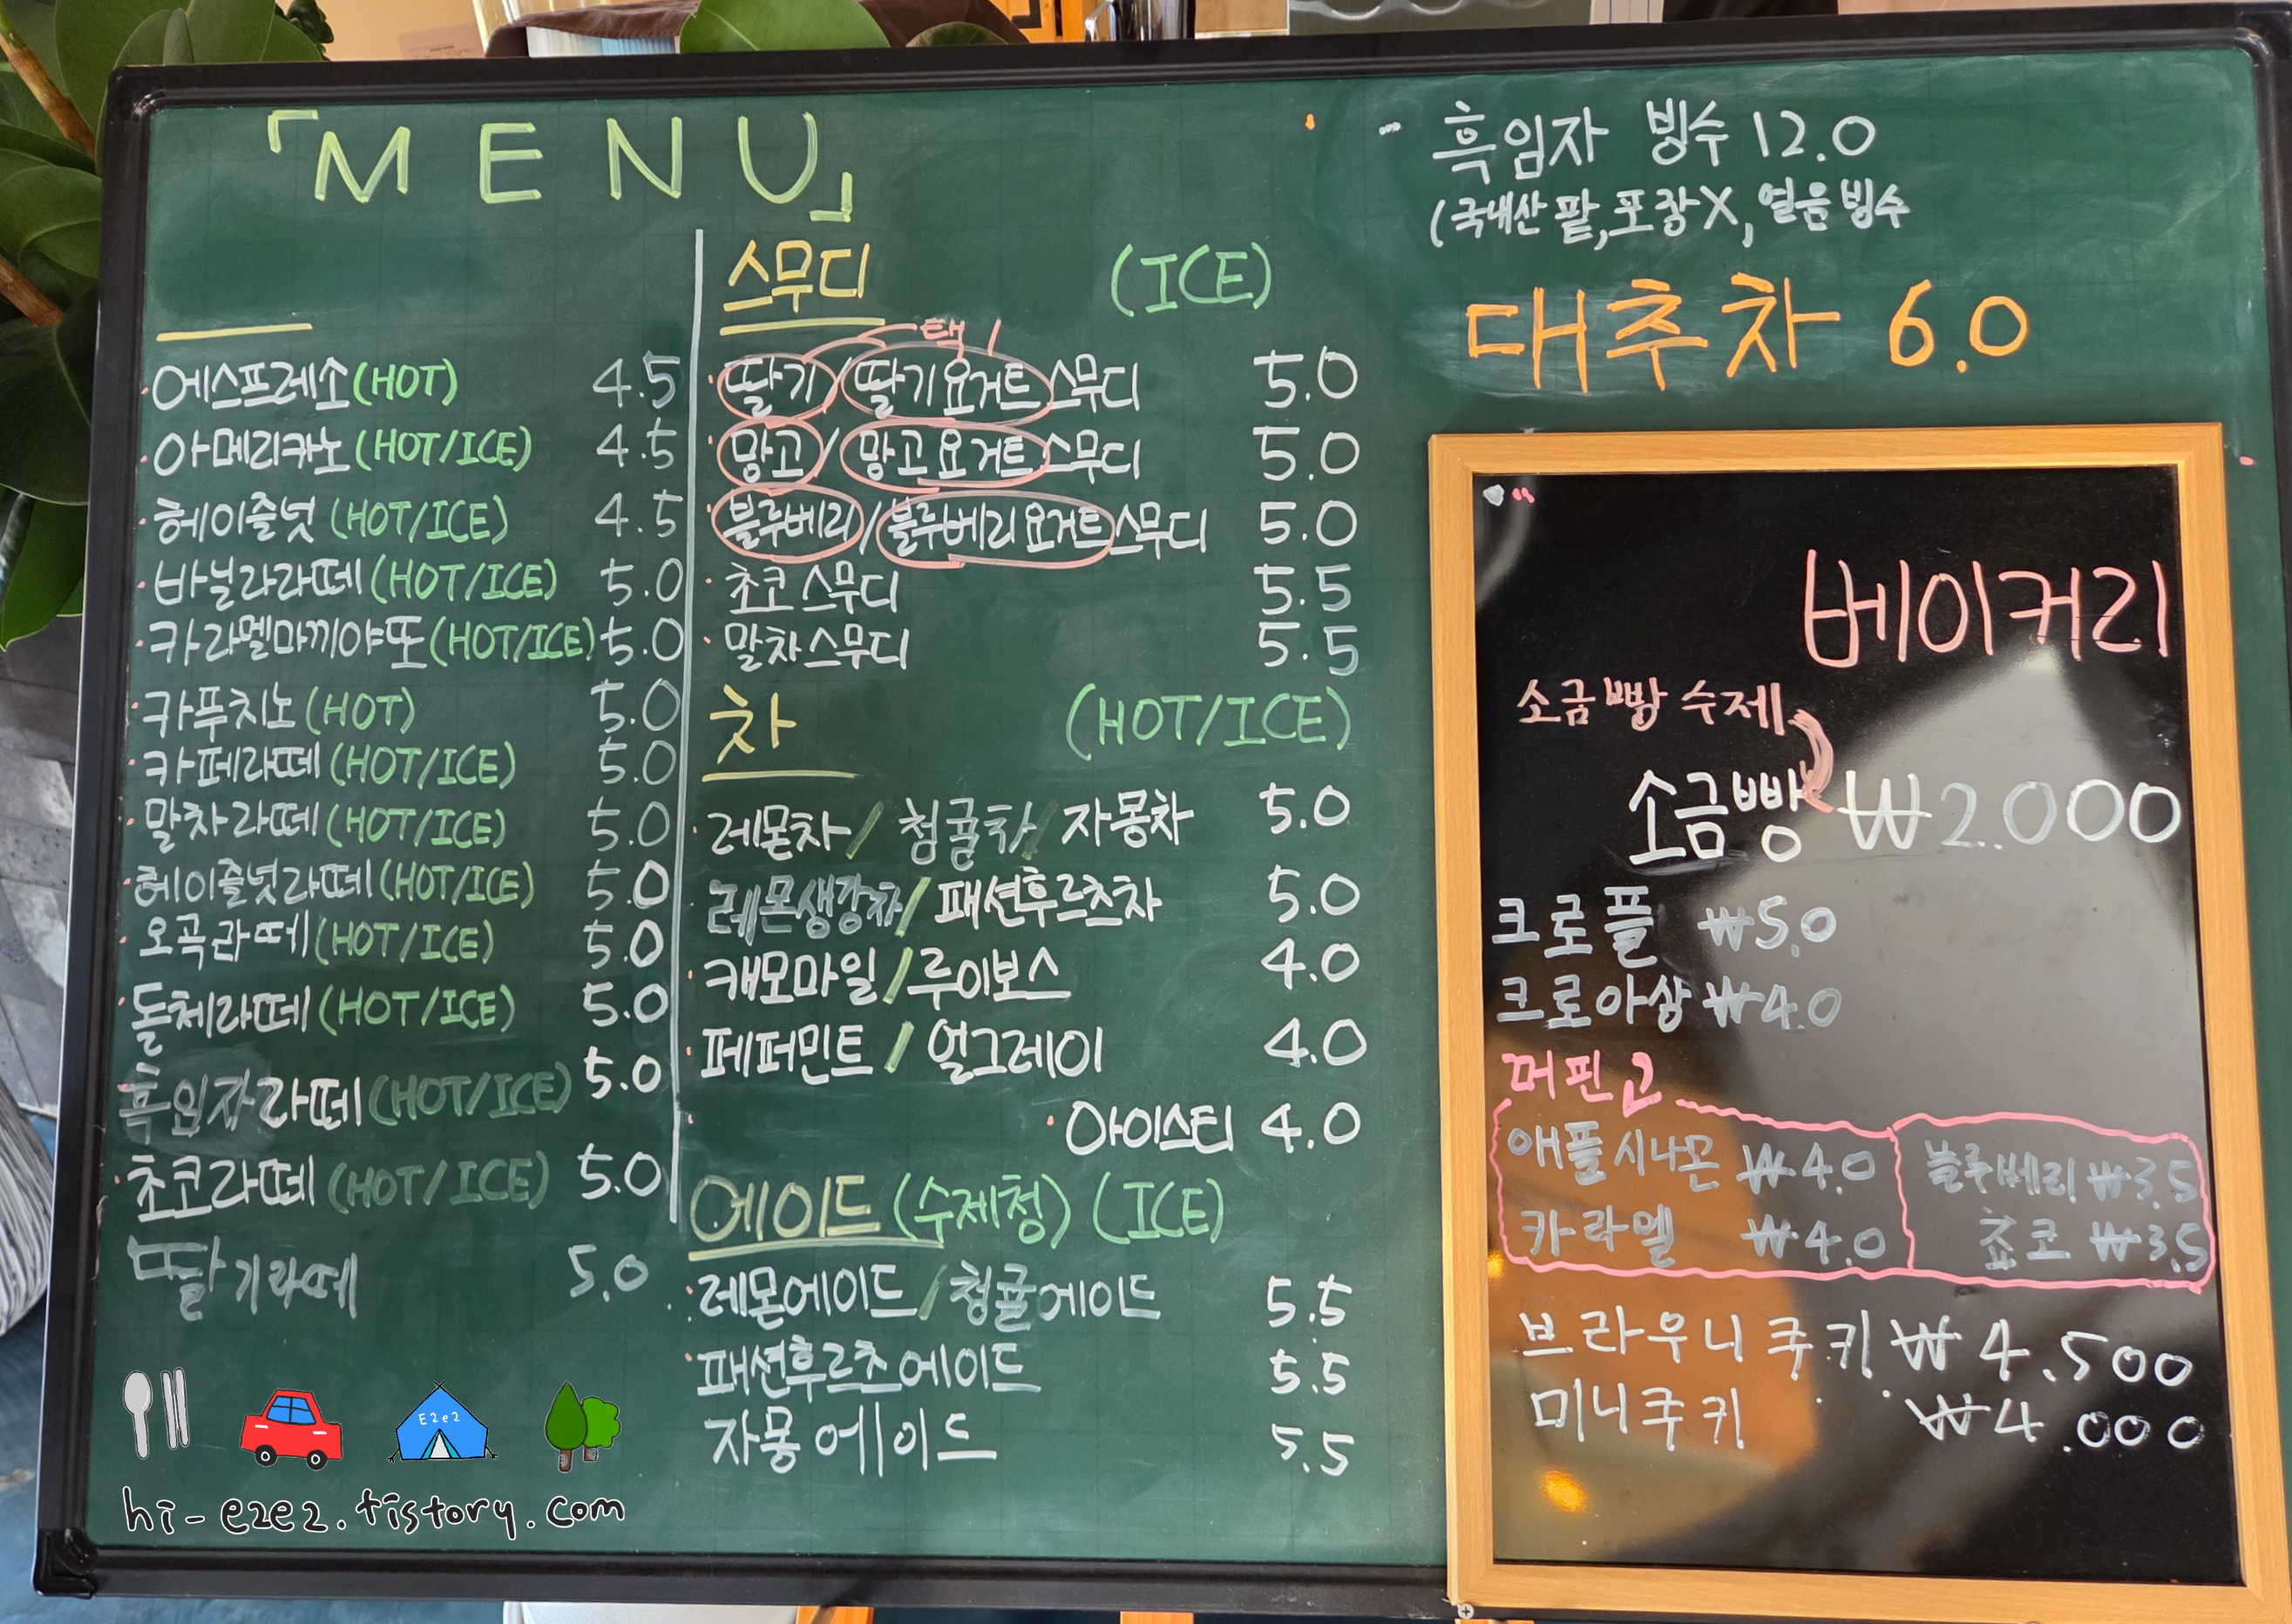 「MENU」
에스프레소(HOT) 4.5
아메리카노(HOT/ICE) 4.5
헤이즐넛(HOT/ICE) 4.5
바닐라라떼(HOT/ICE) 5.0
카라멜마끼야또(HOT/ICE) 5.0
카푸치노(HOT) 5.0
카페라떼(HOT/ICE) 5.0
말차라떼(HOT/ICE) 5.0
헤이즐넛라떼(HOT/ICE) 5.0
오곡라떼(HOT/ICE) 5.0
돌체라떼(HOT/ICE) 5.0
흑임자라떼(HOT/ICE) 5.0
초코라떼(HOT/ICE) 5.0
딸기라떼 5.0
스무디 (ICE)
택 1
딸기/딸기요거트스무디 5.0
망고/망고요거트스무디 5.0
블루베리/블루베리요거트스무디 5.0
초코스무디 5.5
말차스무디 5.5
차 (HOT/ICE)
레몬차/청귤차/자몽차 5.0
레몬생강차/패션후르츠차 5.0
캐모마일/루이보스 4.0
페퍼민트/얼그레이 4.0
아이스티 4.0
에이드(수제청)(ICE)
레몬에이드/청귤에이드 5.5
패션후르츠에이드 5.5
자몽에이드 5.5
흑임자 빙수 12.0
(국내산 팥, 포장X, 얼음빙수
대추차 6.0
베이커리
소금빵 수제
소금빵 ₩2.000
크로플 ₩5.0
크로아상 ₩4.0
머핀
애플시나몬 ₩4.0 블루베리 ₩3.5
카라멜 ₩4.0 쵸코 ₩3.5
브라우니쿠키 ₩4.500
미니쿠키 ₩4.000
E2e2
hi-e2e2.tistory.com